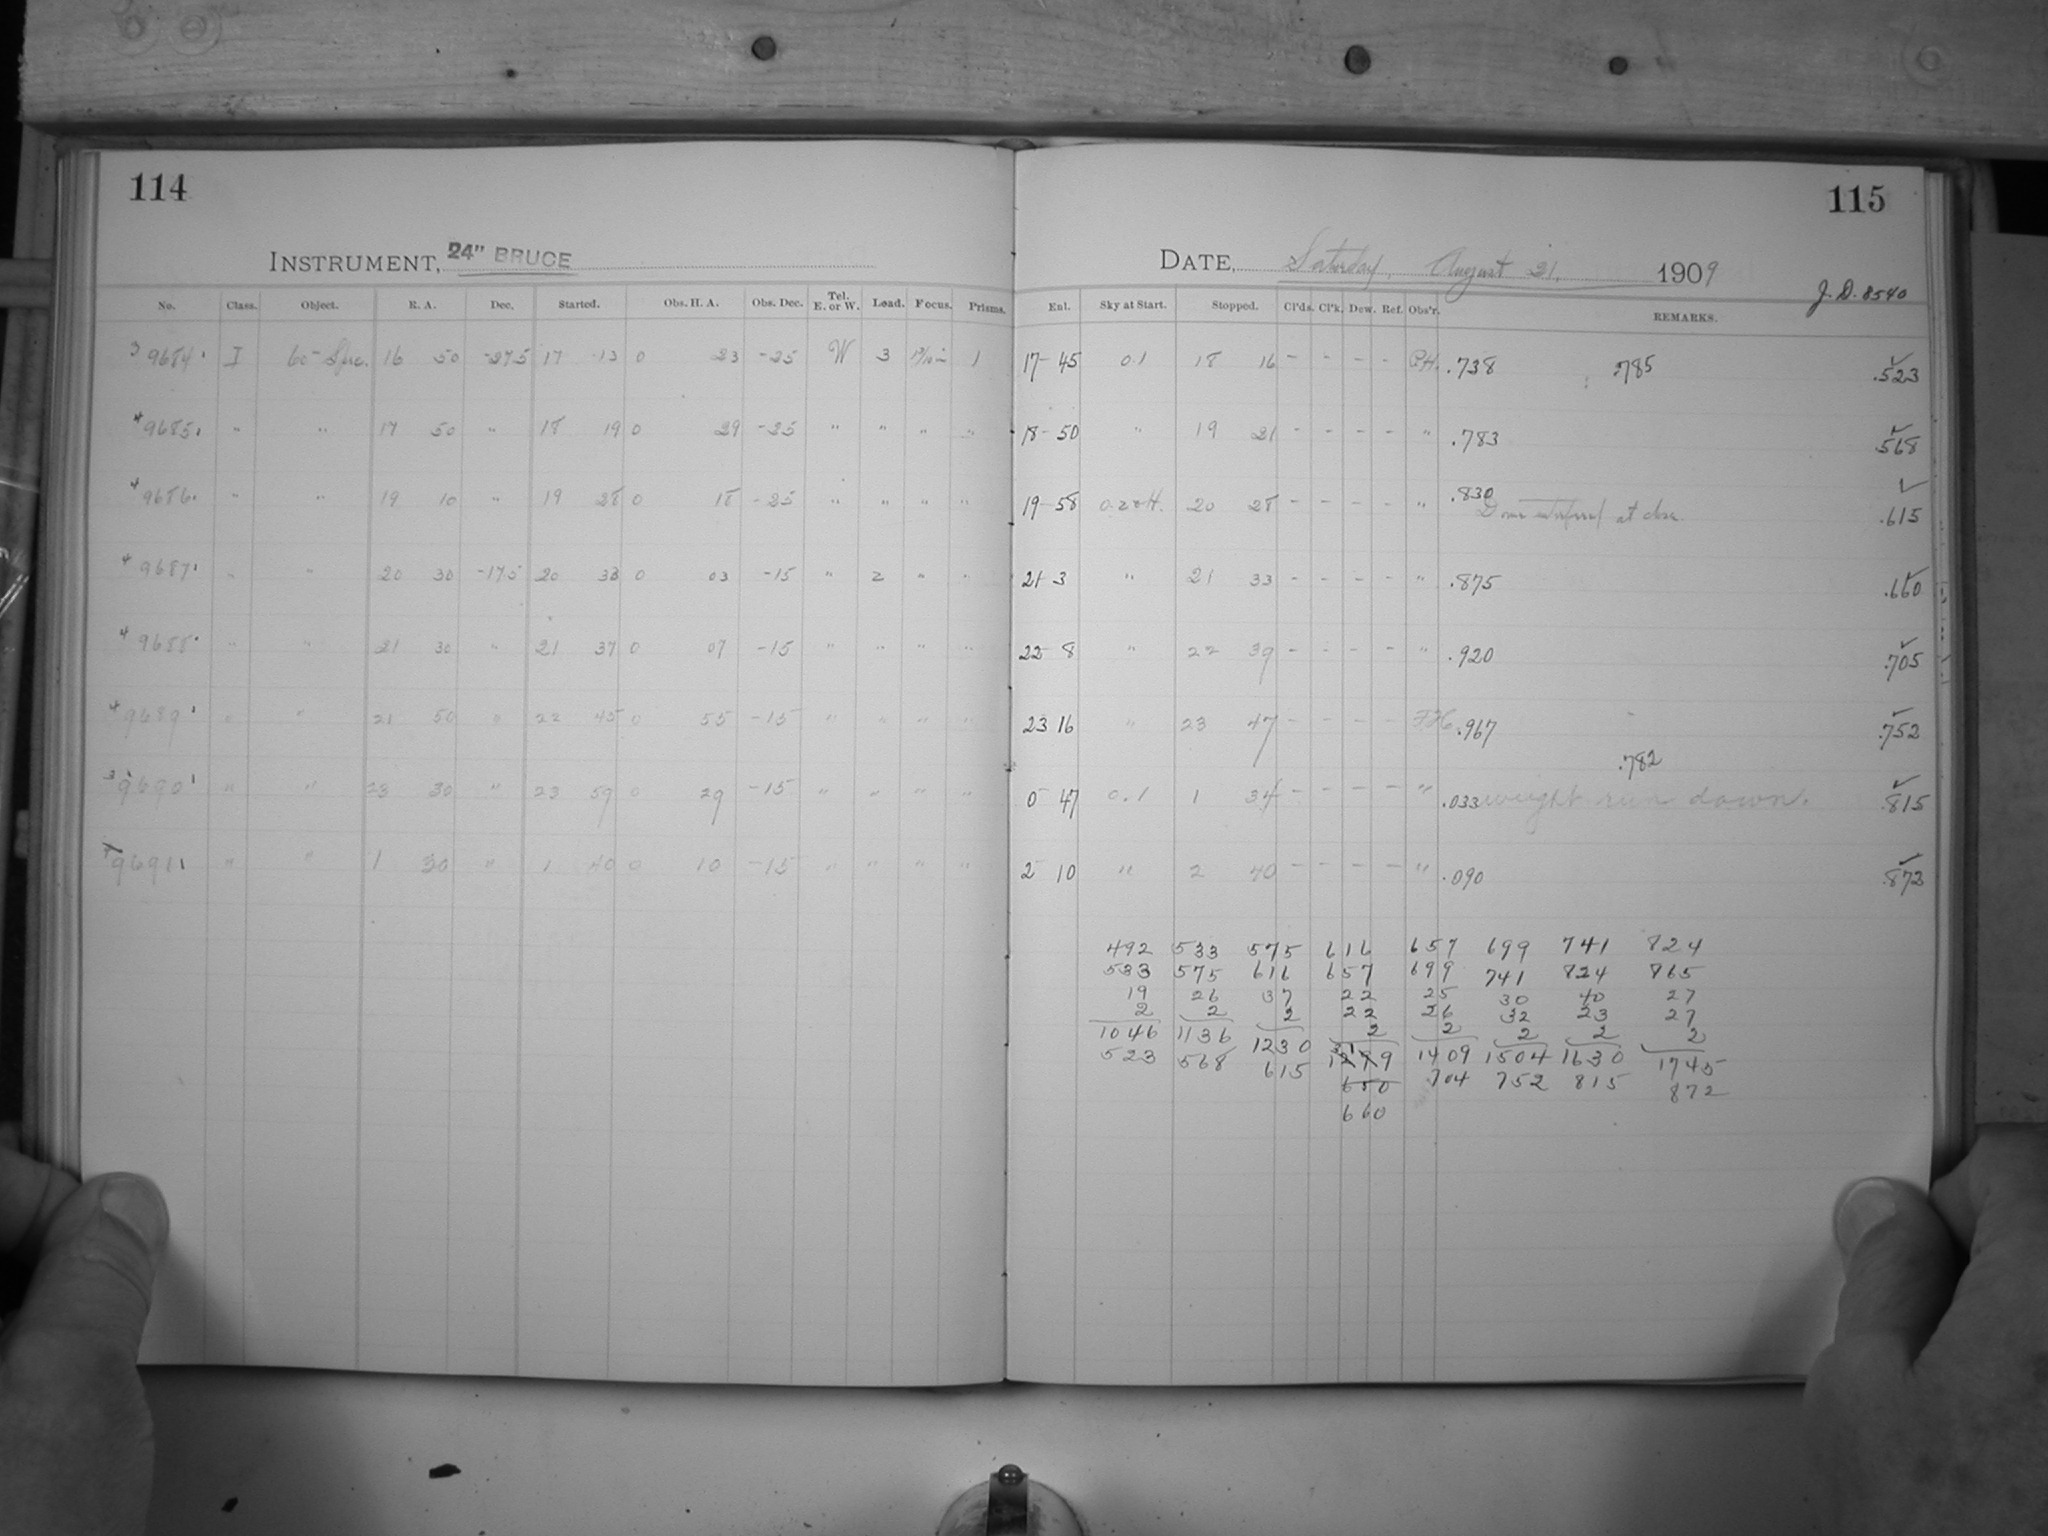 114
INSTRUMENT, 24" BRUCE
No. Class. Object. R. A. Dec. Started. Obs. H. A. Obs. Dec. Tel. E. or W. Load. Focus. Prisms.
3 9684. I 60-Spec. 16 50 -27.5 17 13 0 23 -25 W 3 1
4 9685. " " 17 50 " 18 19 0 29 -25 " " " "
4 9686. " " 19 10 " 19 28 0 18 -25 " " " "
4 9687. " " 20 30 -17.5 20 33 0 03 -15 " 2 " "
4 9688. " " 21 30 " 21 37 0 07 -15 " " " "
4 9689. " " 21 50 " 22 45 0 55 -15 " " " "
3 9690. " " 23 30 " 23 59 0 29 -15 " " " "
4 9691. " " 1 30 " 1 40 0 10 -15 " " " "
115
DATE, Saturday, August 21, 1909
J.D. 8540
Enl. Sky at Start. Stopped. Cl'ds. Cl'k. Dew. Ref. Obs'r. REMARKS.
17-45 0.1 18 16 - - - - P.H. .738 .785 .523
18-50 " 19 21 - - - - " .783 .568
19-58 0.2 20 28 - - - - " .830 Dome interfered at close. .615
21 3 " 21 33 - - - - " .875 .660
22 8 " 22 39 - - - - " .920 .705
23 16 " 23 47 - - - - .967 .752
.782
0 47 0.1 1 34 - - - - " .033 weight run down. .815
2 10 " 2 40 - - - - " .090 .872
492 533 575 616 657 699 741 824
533 575 616 657 699 741 824 865
19 26 37 22 25 30 40 27
2 2 2 22 26 32 23 27
2 2 2 2 2
1046 1136 1230 1409 1504 1630 1745
523 568 615 650 704 752 815 872
660